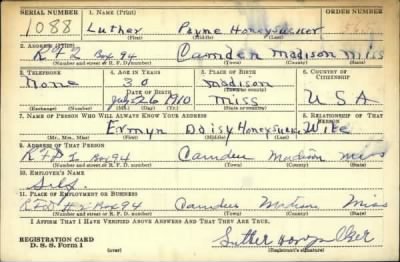 SERIAL NUMBER 1. NAME (Print) ORDER NUMBER
1088 Luther Payne Honeysucker
(First) (Middle) (Last)
2. ADDRESS (Print)
R#2 Box 94 Camden Madison Miss
(Number and street or R. F. D. number) (Town) (County) (State)
3. TELEPHONE 4. AGE IN YEARS 5. PLACE OF BIRTH 6. COUNTRY OF CITIZENSHIP
None 30 Madison
DATE OF BIRTH (Town or county)
July 26 1910 Miss U S A
(Exchange) (Number) (Mo.) (Day) (Yr.) (State or country)
7. NAME OF PERSON WHO WILL ALWAYS KNOW YOUR ADDRESS 8. RELATIONSHIP OF THAT PERSON
Ermyn Daisy Honeysucker Wife
(Mr., Mrs., Miss) (First) (Middle) (Last)
9. ADDRESS OF THAT PERSON
Box 94 Camden Madison Miss
(Number and street or R. F. D. number) (Town) (County) (State)
10. EMPLOYER'S NAME
Self
11. PLACE OF EMPLOYMENT OR BUSINESS
Box 94 Camden Madison Miss
(Number and street or R. F. D. number) (Town) (County) (State)
I AFFIRM THAT I HAVE VERIFIED ABOVE ANSWERS AND THAT THEY ARE TRUE.
REGISTRATION CARD
D. S. S. Form 1 (over) Luther
(Registrant's signature)